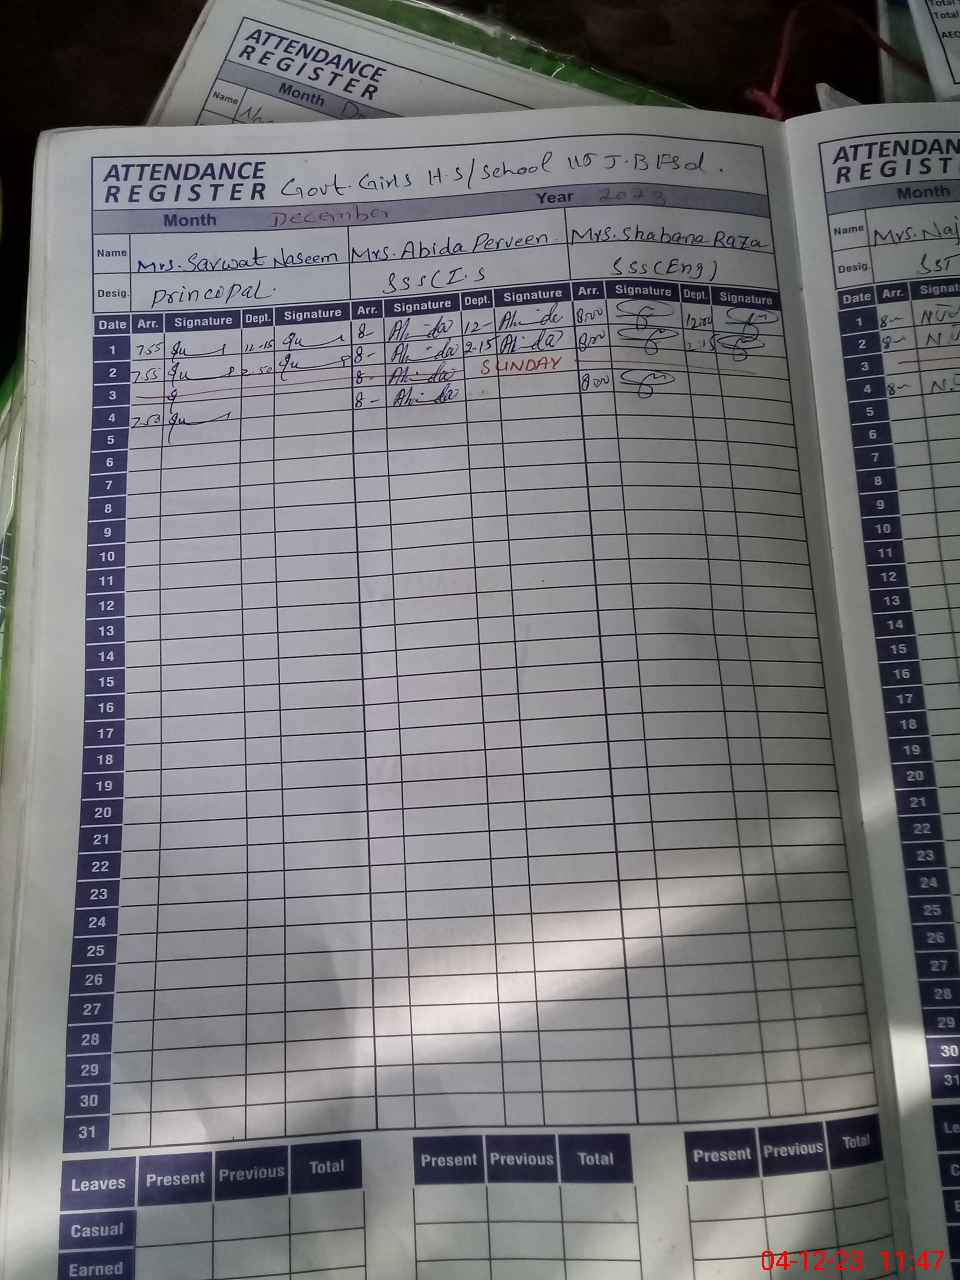 ATTENDANCE
REGISTER
Month
Name
Total
AEO
ATTENDANCE
REGISTER Govt. Girls H.S/School 115 J.B Fsd.
Month December Year 2023
Name Mrs. Sarwat Naseem Mrs. Abida Perveen Mrs. Shabana Raza
Desig. Principal SSS(I.S SSS(Eng)
Date Arr. Signature Dept. Signature Arr. Signature Dept. Signature Arr. Signature Dept. Signature
1 7.55 12-15 8- Abida 12- Abida 8:00 12:00
2 7.55 2.50 8- Abida 2.15 Abida 8:00 2.15
3 8- Abida SUNDAY
4 7.50 8- Abida 8:00
5
6
7
8
9
10
11
12
13
14
15
16
17
18
19
20
21
22
23
24
25
26
27
28
29
30
31
Leaves Present Previous Total Present Previous Total Present Previous Total
Casual
Earned
ATTENDAN
REGIST
Month
Name Mrs. Naj
Desig. SST
Date Arr. Signat
1 8-
2 8-
3
4 8-
5
6
7
8
9
10
11
12
13
14
15
16
17
18
19
20
21
22
23
24
25
26
27
28
29
30
31
Le
04-12-23 11:47